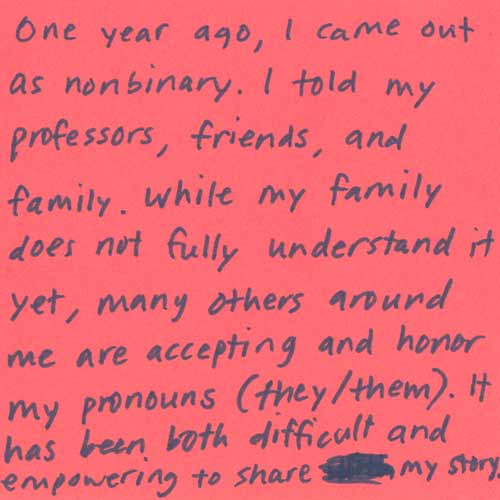 One year ago, I came out
as nonbinary. I told my
professors, friends, and
family. While my family
does not fully understand it
yet, many others around
me are accepting and honor
my pronouns (they/them). It
has been both difficult and
empowering to share my story.